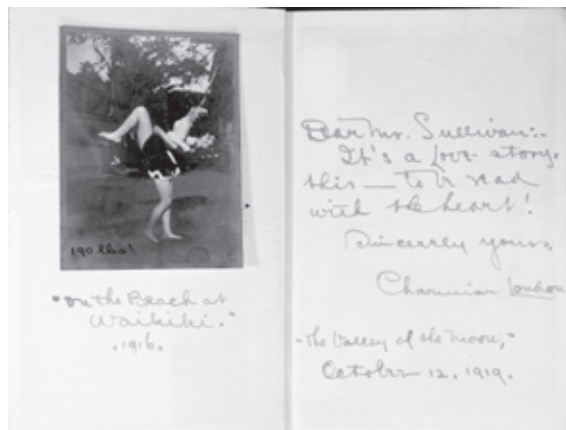 190 lbs!
"On the Beach at
Waikiki."
.1916.
Dear Mr. Sullivan:-
It's a love-story,
this — to be read
with the heart!
Sincerely yours,
Charmian London
"The Valley of the Moon,"
October 12, 1919.